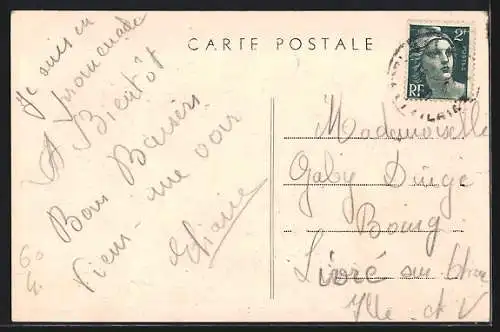 CARTE POSTALE
2F
POSTES
RF
Je suis en
promenade
A Bientôt
Bons Baisers
Viens me voir
Eliane
60
Mademoiselle
Gaby
Bourg
Livré sur
Ille et V